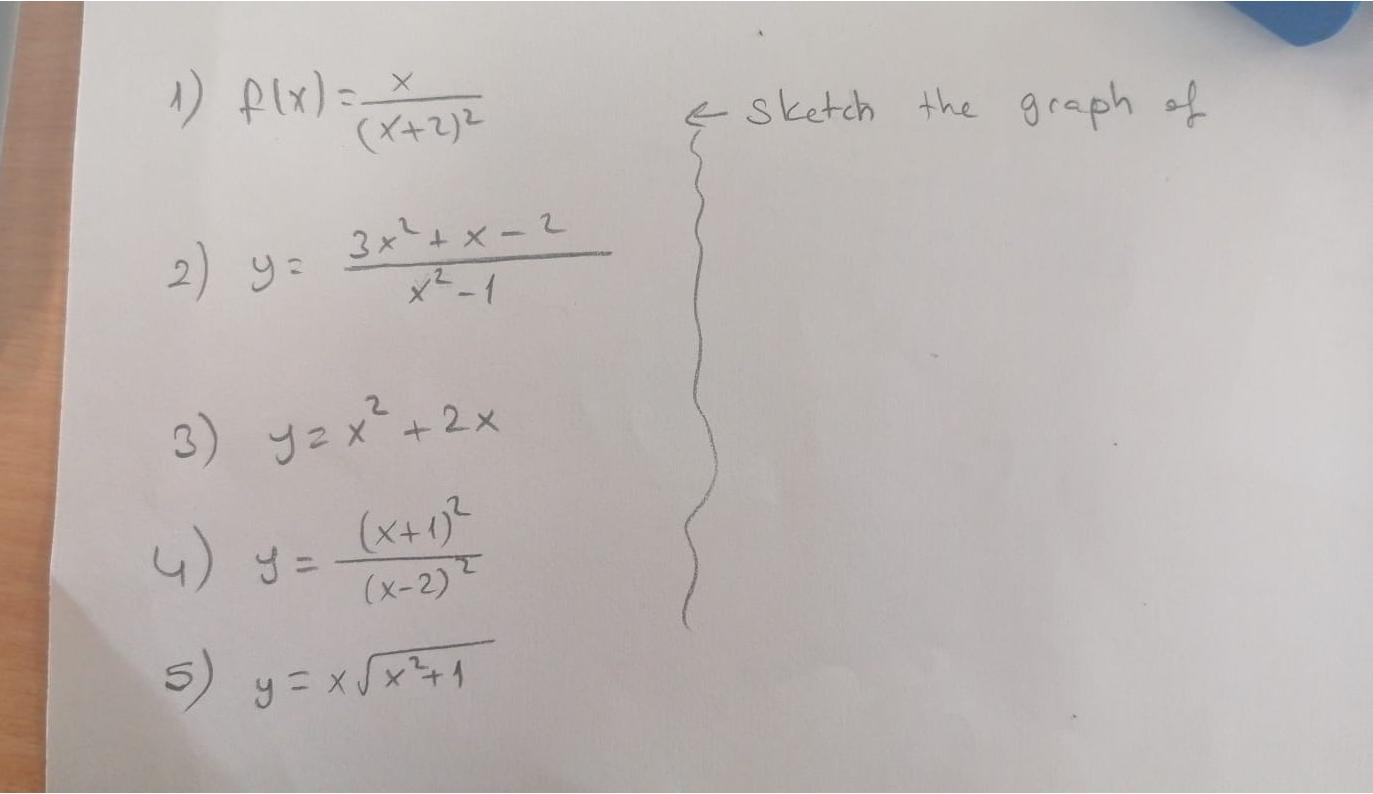 1) f(x) = x/(x+2)²
← Sketch the graph of
2) y = (3x² + x - 2)/(x² - 1)
3) y = x² + 2x
4) y = (x+1)²/(x-2)²
5) y = x√(x²+1)